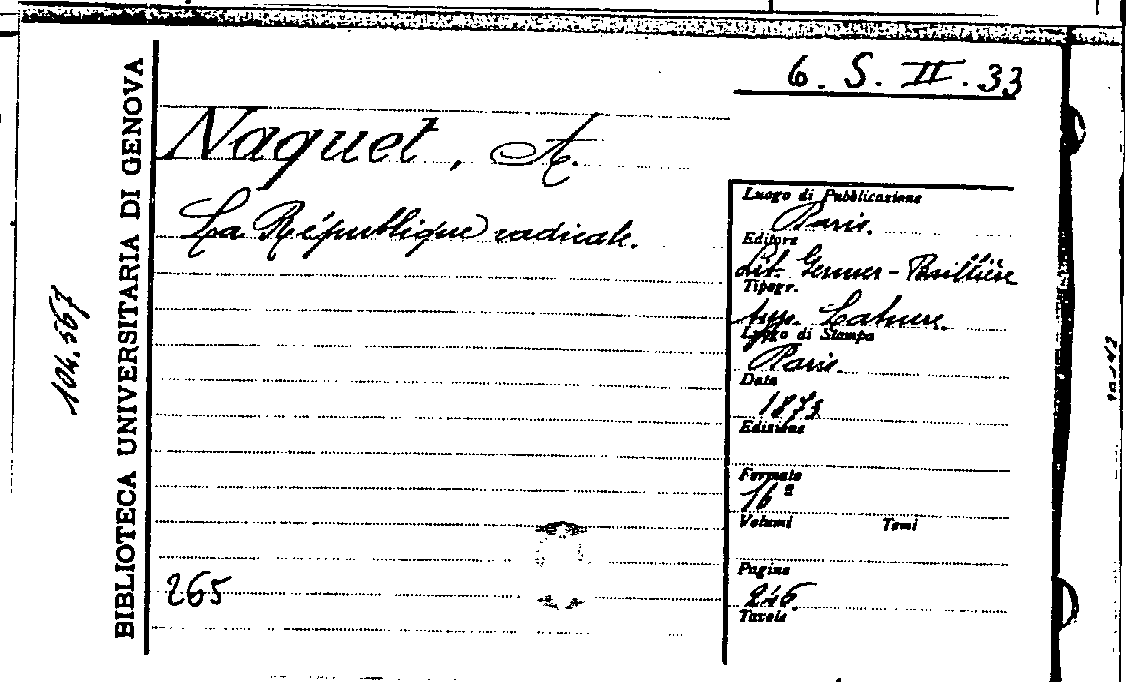 6. S. II. 33
BIBLIOTECA UNIVERSITARIA DI GENOVA
104.567
Naquet, A.
La République radicale.
265
Luogo di Pubblicazione
Paris.
Editore
Lib. Germer-Baillière
Tipogr.
Lahure.
Luogo di Stampa
Paris.
Data
1873
Edizione
Formato
16º
Volumi Tomi
Pagine
246
Tavole